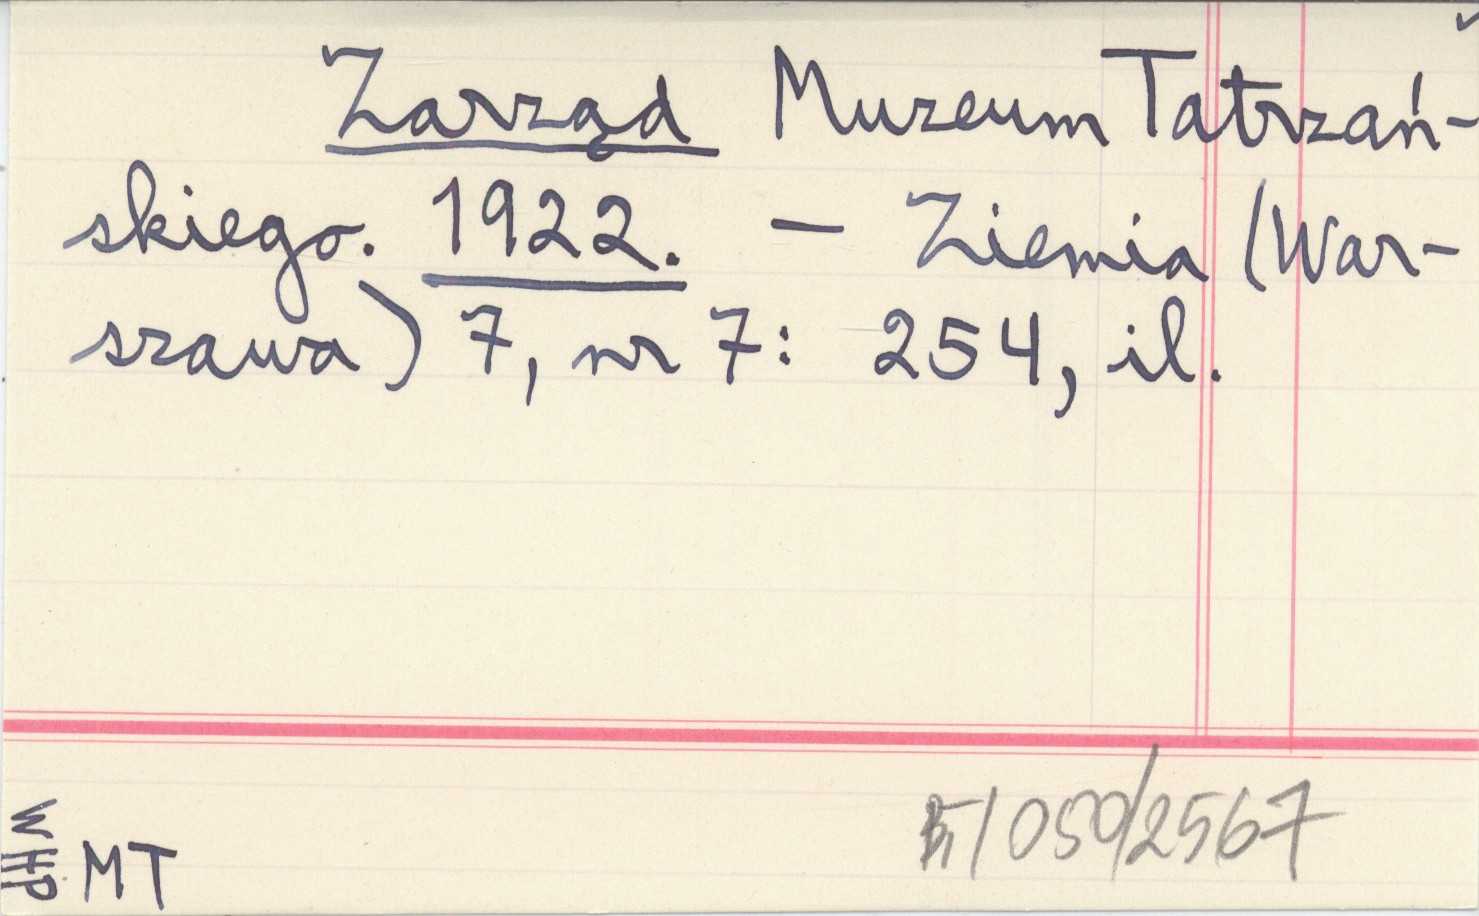 Zarząd Muzeum Tatrzań-
skiego. 1922. – Ziemia (War-
szawa) 7, nr 7: 254, il.
050/2567
WHP
MT